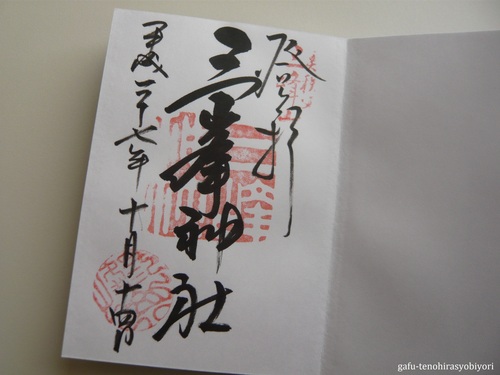 登拝
三峯神社
平成二十七年十月十四日
gafu-tenohirasyobiyori